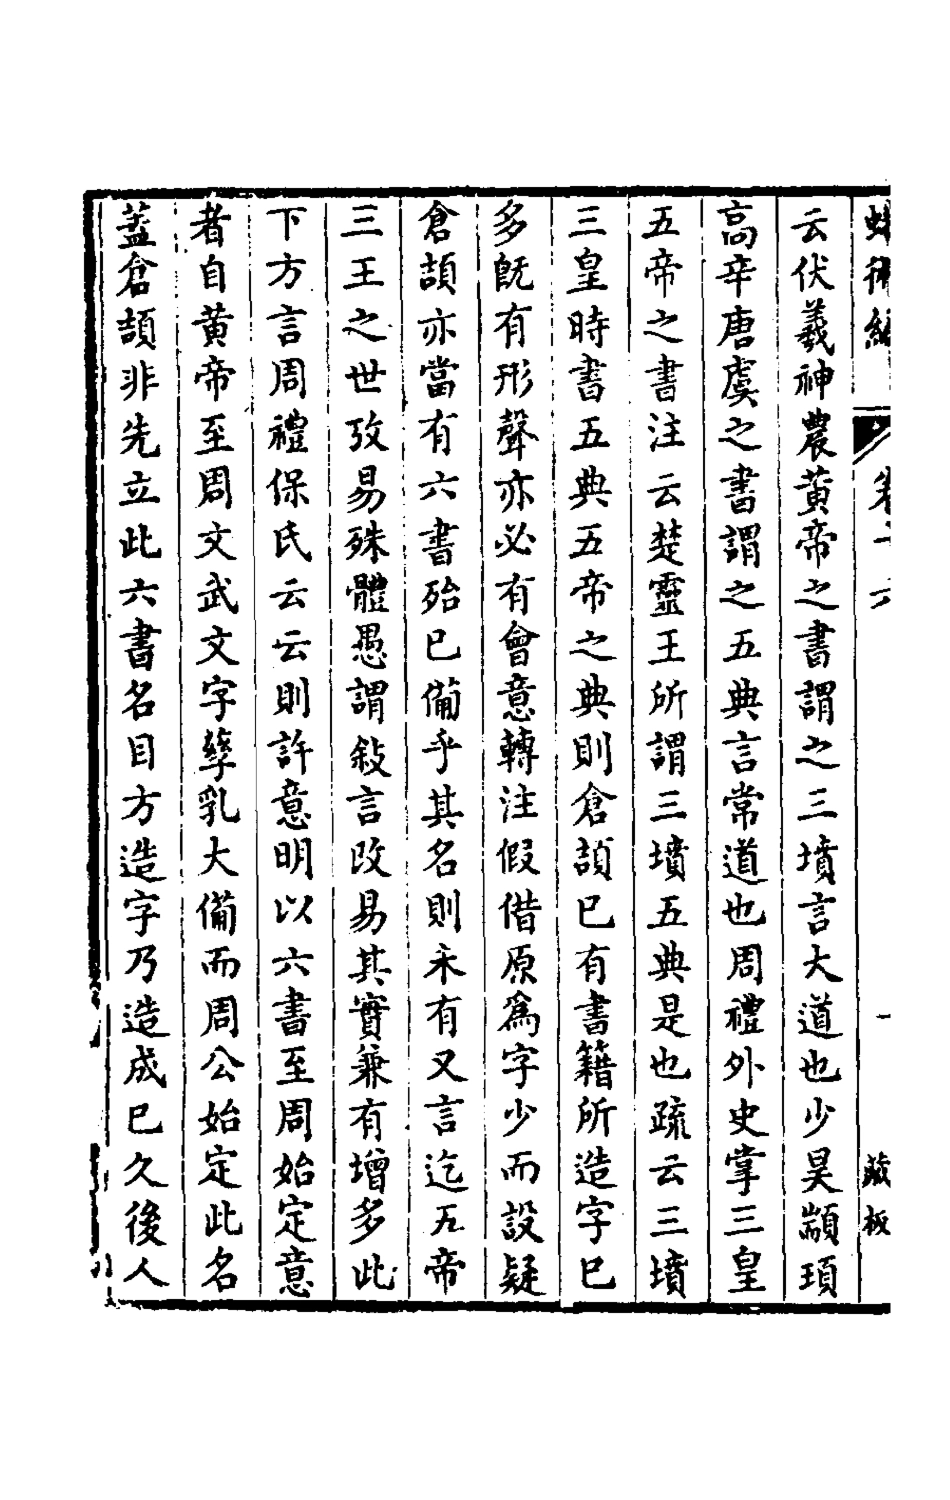 蛾術編
卷十六
一
藏板
云伏羲神農黃帝之書謂之三墳言大道也少昊顓頊
高辛唐虞之書謂之五典言常道也周禮外史掌三皇
五帝之書注云楚靈王所謂三墳五典是也疏云三墳
三皇時書五典五帝之典則倉頡巳有書籍所造字巳
多旣有形聲亦必有會意轉注假借原爲字少而設疑
倉頡亦當有六書殆巳備乎其名則未有又言迄五帝
三王之世攷易殊體愚謂敍言改易其實兼有增多此
下方言周禮保氏云云則許意明以六書至周始定意
者自黃帝至周文武文字孳乳大備而周公始定此名
蓋倉頡非先立此六書名目方造字乃造成巳久後人